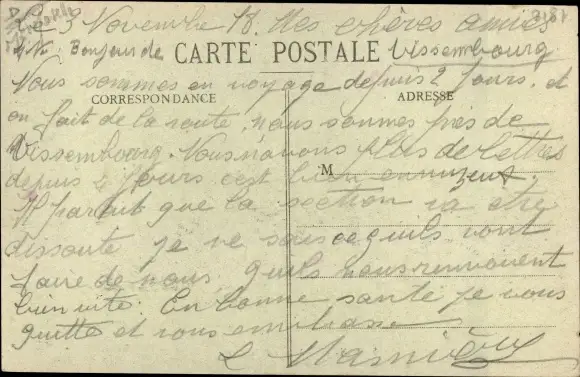 Le 3 Novembre 18. Mes chères amies
Bonjour de Wissembourg
CARTE POSTALE
Nous sommes en voyage depuis 2 jours, et
CORRESPONDANCE
ADRESSE
on fait de la route, nous sommes près de
Wissembourg. Nous n'avons plus de lettres
M
depuis 2 jours c'est bien ennuyeux.
Il parait que la section va être
dissoute je ne sais ce qu'ils vont
faire de nous, qu'ils nous renvoient
bien vite. En bonne santé je vous
quitte et vous embrasse